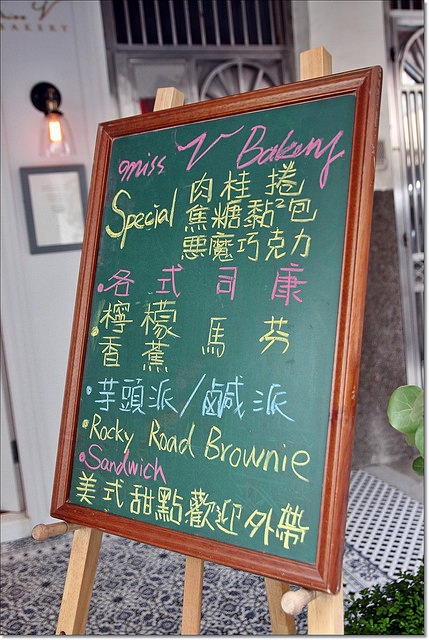 V
BAKERY
miss V Bakery
Special 肉桂捲
焦糖黏²包
惡魔巧克力
•各式司康
•檸檬 馬芬
香蕉
•芋頭派/鹹派
•Rocky Road Brownie
•Sandwich
美式甜點歡迎外帶